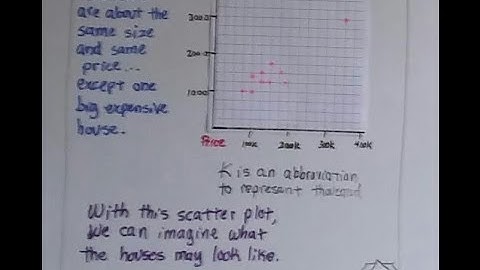 are about the
same size
and same
price...
except one
big expensive
house.
3000
2000
1000
Price 100K 200K 300K 400K
K is an abbreviation
to represent thousand
With this scatter plot,
We can imagine what
the houses may look like.